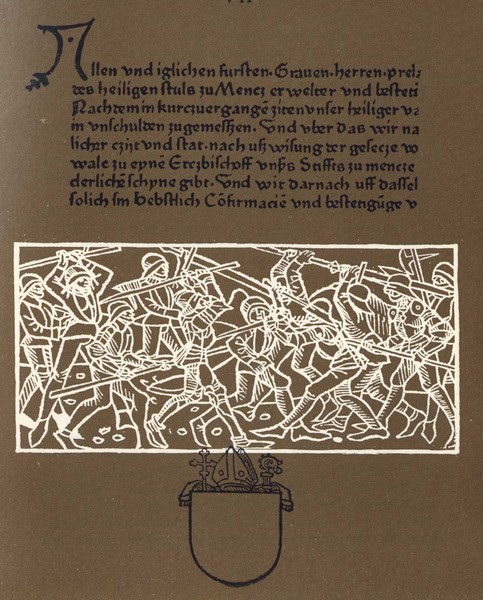 Allen vnd iglichen fursten. Grauen. herren. prela
des heiligen stuls zu Mencz erwelter vnd besteti
Nachtem in kurczuergangē zĳten vnser heiliger va
in vnschulden zugemeſſen. Vnd vber das wir na
licher czĳt vnd stat. nach vſzwisung der gesecze vo
wale zu eynē Erczbischoff vnſzs Stiffts zu mencze
derlichē schyne gibt. Vnd wir darnach vff daſſel
solich sin Bebstlich Cōfirmaciē vnd bestetigūge v